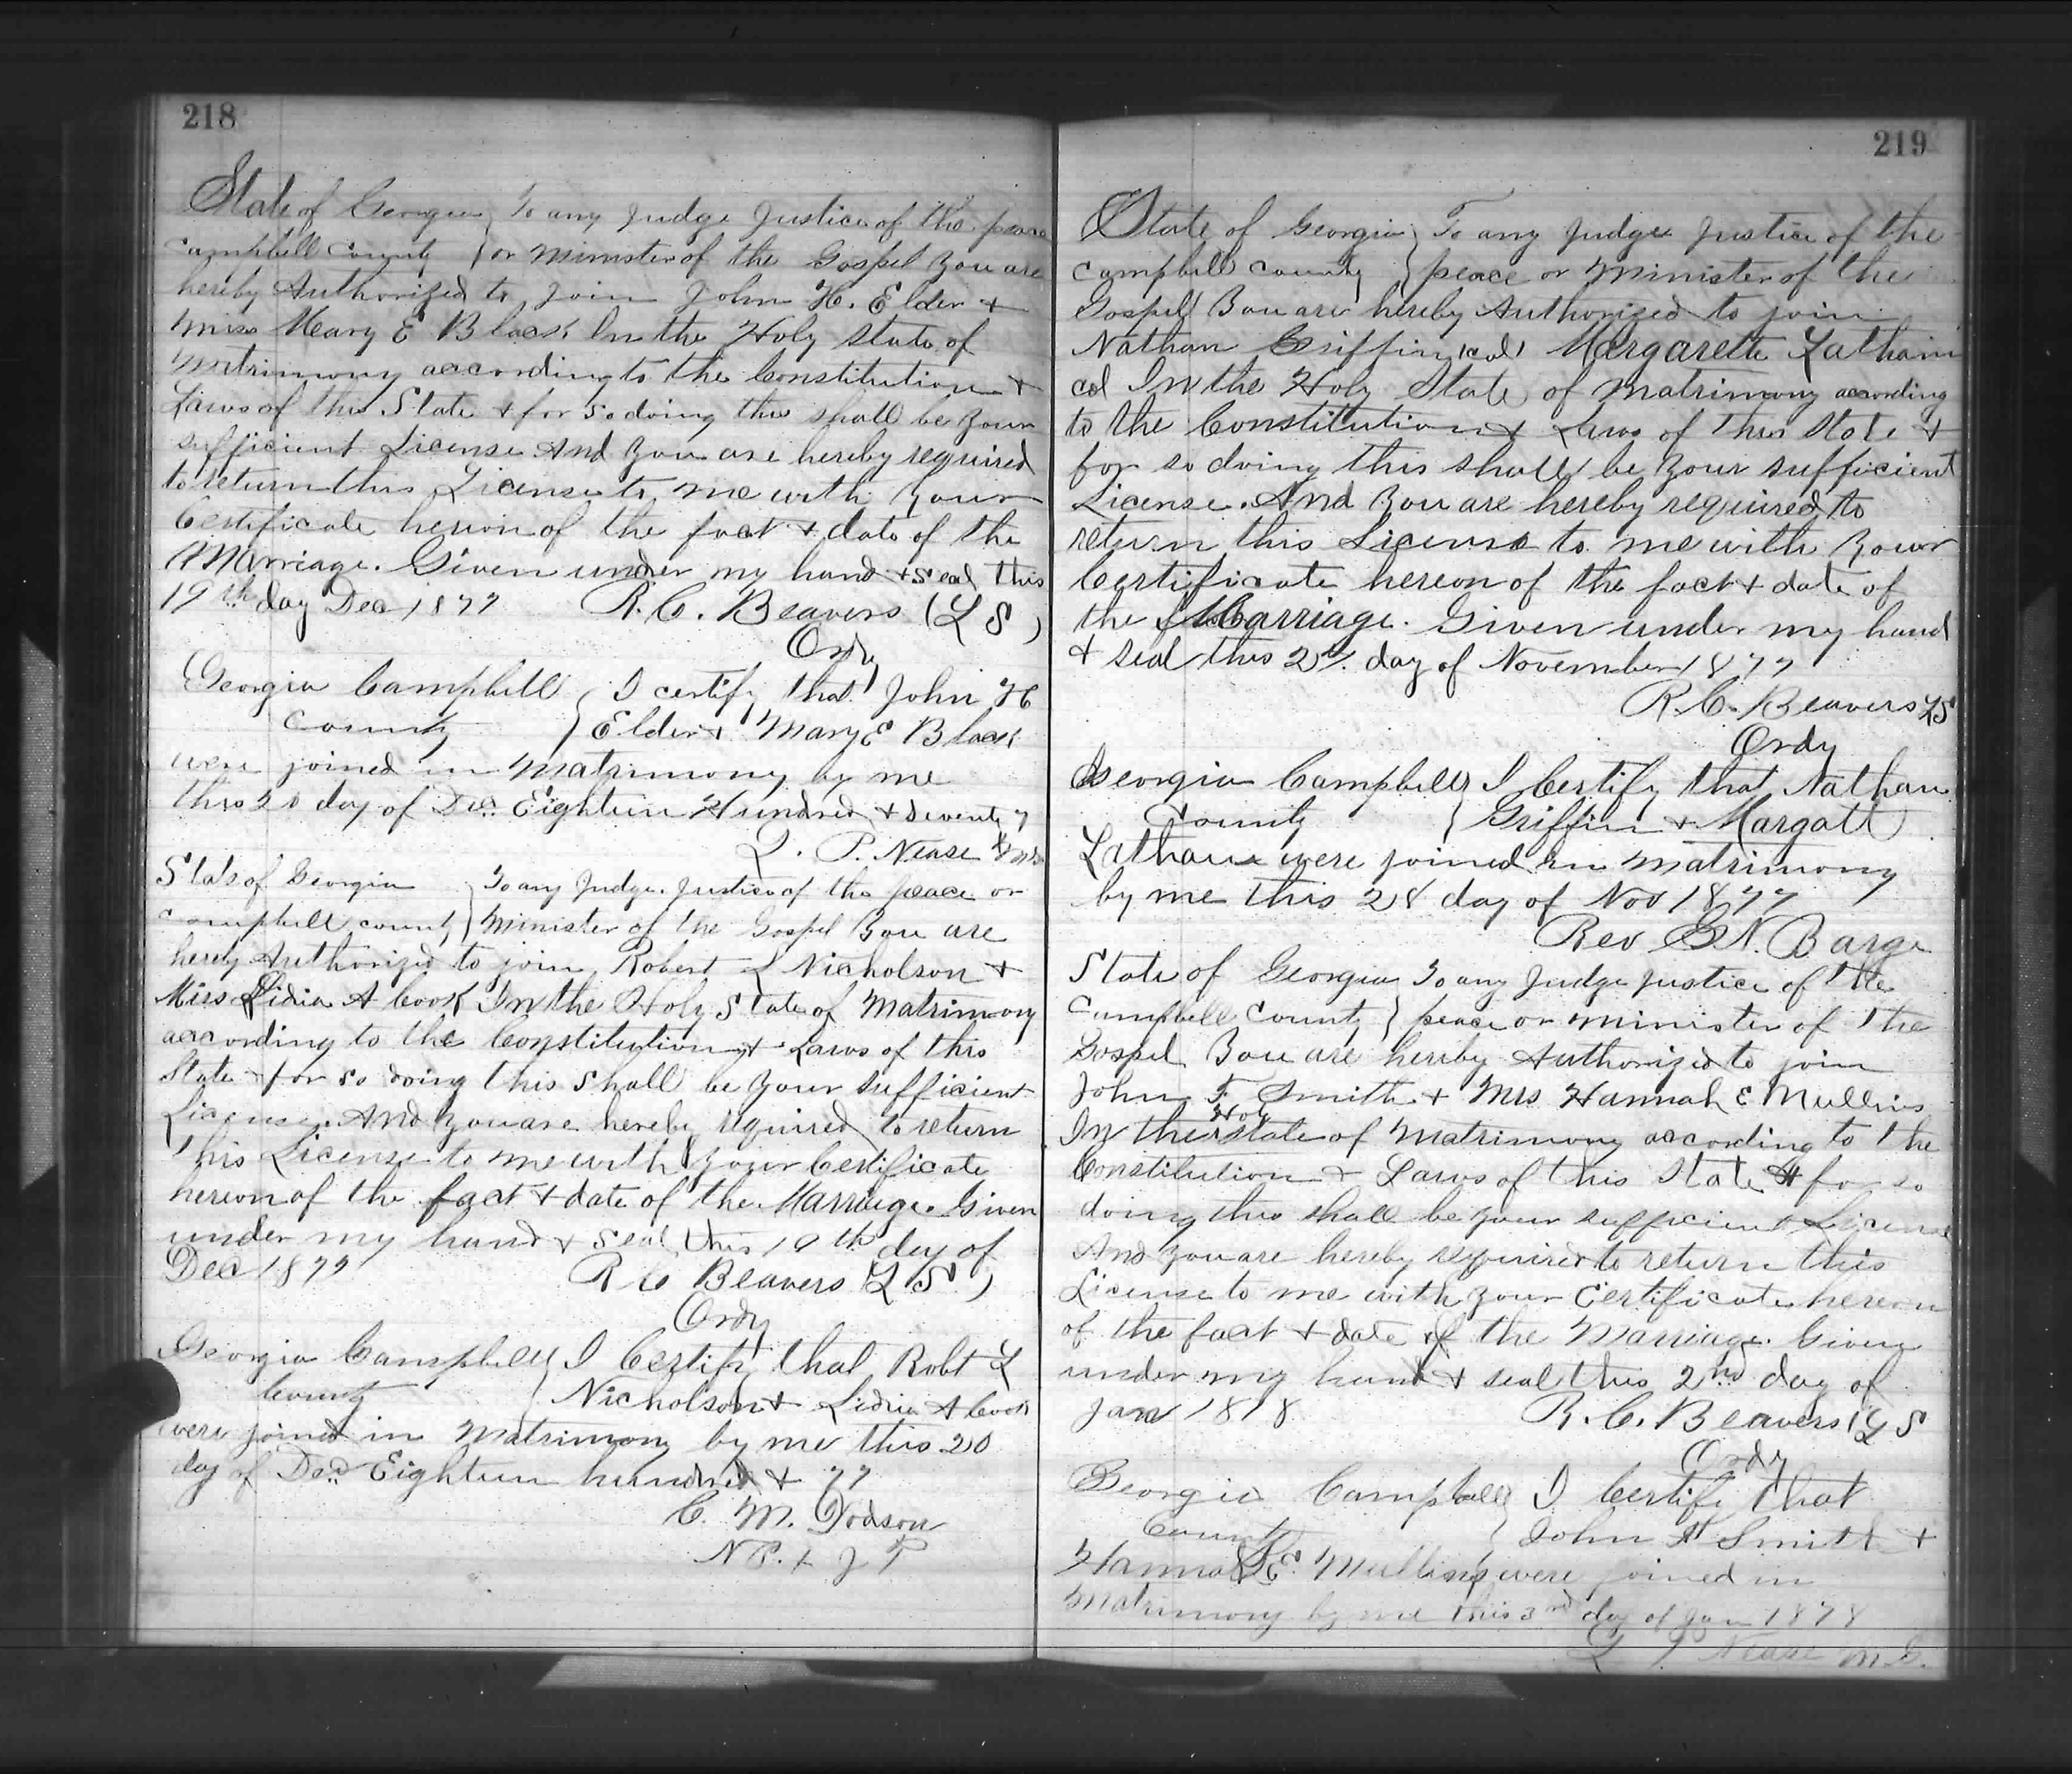 218
State of Georgia } To any Judge Justice of the peace
Campbell County } or Minister of the Gospel You are
hereby Authorized to join John H. Elder +
Miss Mary E Black In the Holy State of
Matrimony according to the Constitution +
Laws of this State + for so doing this shall be your
sufficient License And You are hereby required
to return this License to me with Your
Certificate hereon of the fact + date of the
Marriage. Given under my hand + seal this
19th day Dec 1877 R. C. Beavers (L S)
Ordy
Georgia Campbell } I certify that John H
County } Elder + Mary E Black
were joined in Matrimony by me
this 20 day of Dec. Eighteen Hundred + Seventy 7
P. Nease
State of Georgia } To any Judge. Justice of the peace or
Campbell County } Minister of the Gospel You are
hereby Authorized to join Robert L Nicholson +
Miss Lidia A Cook In the Holy State of Matrimony
according to the Constitution + Laws of this
State + for so doing this shall be Your sufficient
License. And You are hereby required to return
this License to me with Your Certificate
hereon of the fact + date of the Marriage. Given
under my hand + seal this 19th day of
Dec 1877 R C Beavers (L S)
Ordy
Georgia Campbell } I Certify that Robt L
County } Nicholson + Lidia A Cook
were joined in Matrimony by me this 20
day of Dec Eighteen hundred + 77
C. M. Dodson
N P. + J P
219
State of Georgia } To any Judge Justice of the
Campbell County } peace or Minister of the
Gospel You are hereby Authorized to join
Nathan Griffin (col) Margarett Latham
col In the Holy State of Matrimony according
to the Constitution + Laws of this State +
for so doing this shall be Your sufficient
License. And You are hereby required to
return this License to me with Your
Certificate hereon of the fact + date of
the Marriage. Given under my hand
+ seal this 27. day of November 1877
R. C. Beavers LS
Ordy
Georgia Campbell } I Certify that Nathan
County } Griffin + Margatt
Latham were joined in Matrimony
by me this 28 day of Nov 1877
Rev G N. Barge
State of Georgia } To any Judge Justice of the
Campbell County } peace or Minister of the
Gospel You are hereby Authorized to join
John F. Smith + Mrs Hannah E Mullins
In the Holy State of Matrimony according to the
Constitution + Laws of this State + for so
doing this shall be your sufficient License
And You are hereby required to return this
License to me with Your Certificate hereon
of the fact + date of the Marriage. Given
under my hand + seal this 2nd day of
Jan 1878 R. C. Beavers (L S
Ordy
Georgia Campbell } I Certify that
County } John Smith +
Hannah E. Mullins were joined in
Matrimony by me this 3rd day of Jan 1878
Nease M G.